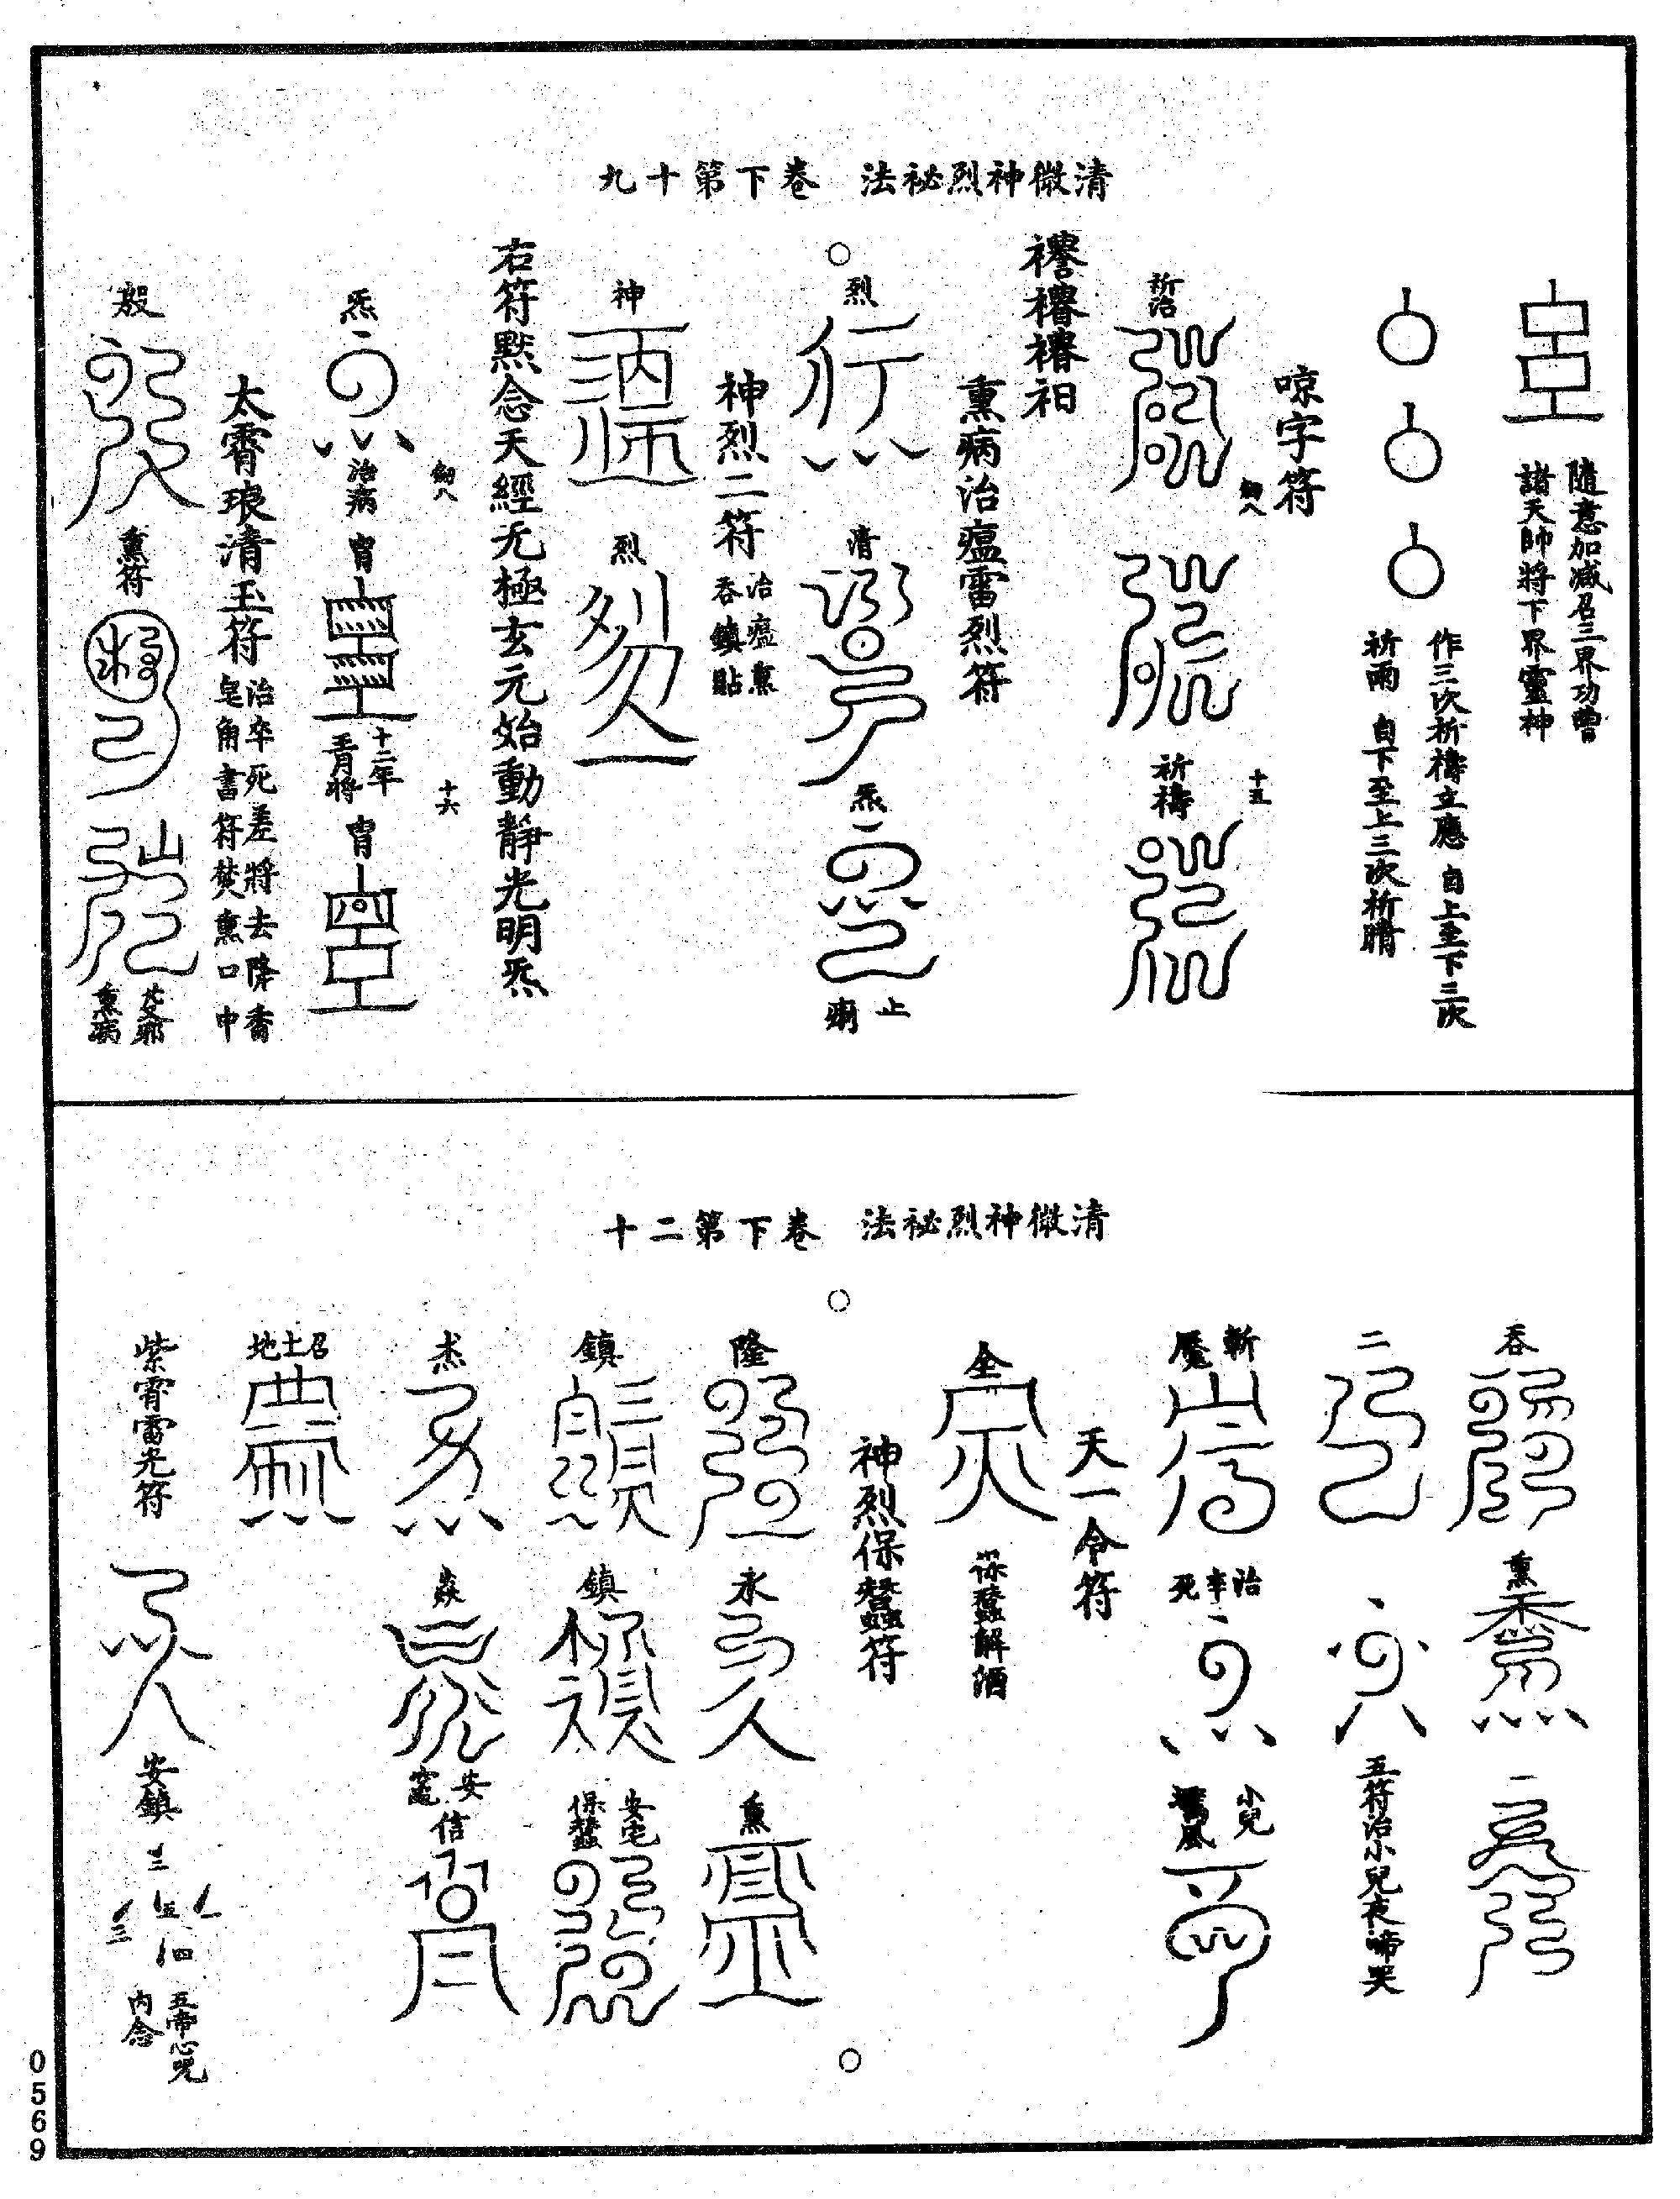 清微神烈祕法　卷下第十九
隨意加減召三界功曹
諸天帥將下界靈神
作三次祈禱立應　自上至下三次
祈雨　自下至上三次祈晴
㖫字符
祈治
劒八
祈禱
十五
熏病治瘟雷烈符
烈
清
炁
止
痢
神烈二符
治瘟熏
吞鎮貼
神
烈
右符默念天經无極玄元始動靜光明炁
劒八
十六
炁
治病
胄
十二年
青將
胄
太霄琅清玉符
治卒死差將去降香
皂角書符焚熏口中
殺
熏符
芟邪
熏病
清微神烈祕法　卷下第二十
吞
熏
二
五符治小兒夜啼哭
斬魘
治卒死
小兒
驚風
天一令符
全
保蠶解酒
神烈保蠶符
隆
永
熏
鎮
鎮
安宅
保蠶
杰
焱
安竈
信
召土地
紫霄雷光符
安鎮
三
五
三
四
五帝心呪
內念
0569